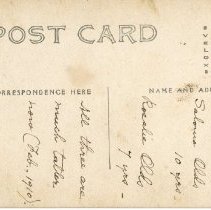 POST CARD
CORRESPONDENCE HERE
NAME AND ADD
All three are
much taller
now (Feb. 191
Olds
10 yrs
Rosalie Olds
7 yrs -